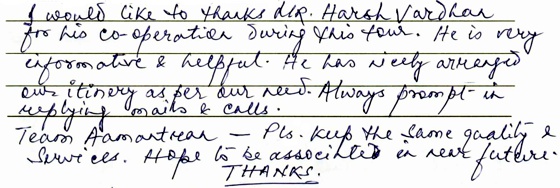 I would like to thanks Mr. Harsh Vardhan
for his co-operation during this tour. He is very
informative & helpful. He has nicely arranged
our itinery as per our need. Always prompt in
replying mails & calls.
Team Aamantran — Pls. keep the same quality &
Services. Hope to be associated in near future.
THANKS.